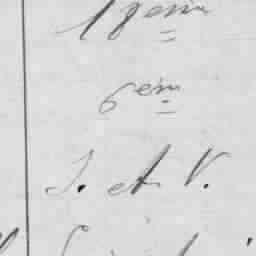 18em
6em
S. et V.